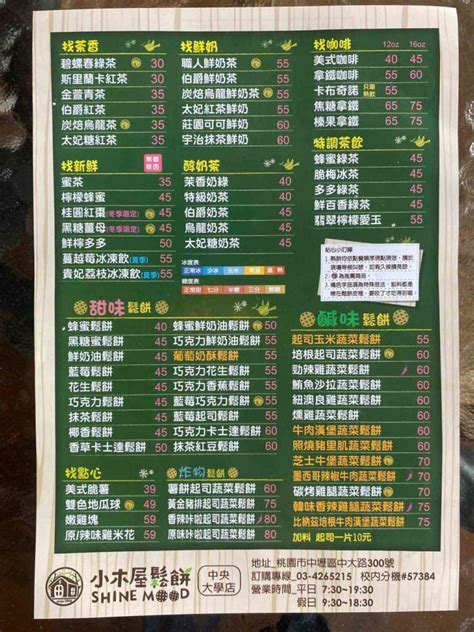 找茶香
碧螺春綠茶 30
斯里蘭卡紅茶 30
金萱青茶 35
伯爵紅茶 35
炭焙烏龍茶 35
太妃糖紅茶 35
找鮮奶
職人鮮奶茶 55
伯爵鮮奶茶 55
炭焙烏龍鮮奶茶 55
太妃紅茶鮮奶 60
莊園可可鮮奶 60
宇治抹茶鮮奶 60
找咖啡 12oz 16oz
美式咖啡 40 45
拿鐵咖啡 55
卡布奇諾 55
焦糖拿鐵 65 75
榛果拿鐵 65 75
找新鮮
蜜茶 35
檸檬蜂蜜 45
桂圓紅棗(冬季限定) 45
黑糖薑母(冬季限定) 45
鮮檸多多 50
蔓越莓冰凍飲(夏季) 55
貴妃荔枝冰凍飲(夏季) 55
醇奶茶
茉香奶綠 40
特級奶茶 40
伯爵奶茶 45
烏龍奶茶 45
太妃糖奶茶 45
冰度表
正常冰 少冰 去冰 常溫 溫 熱
甜度表
正常甜 七分 半糖 三分 無糖
特調茶飲
蜂蜜奶茶 45
脆梅冰茶 45
多多綠茶 45
鮮百香綠茶 45
翡翠檸檬愛玉 55
貼心小叮嚀
甜味鬆餅
蜂蜜鬆餅 40
黑糖蜜鬆餅 40
鮮奶油鬆餅 45
藍莓鬆餅 45
花生鬆餅 45
巧克力鬆餅 45
抹茶鬆餅 45
椰香鬆餅 45
香草卡士達鬆餅 45
蜂蜜鮮奶油鬆餅 50
巧克力鮮奶油鬆餅 55
葡萄奶酥鬆餅 55
巧克力花生鬆餅 55
巧克力香蕉鬆餅 55
藍莓鮮奶油鬆餅 50
藍莓起司鬆餅 55
巧克力卡士達鬆餅 55
抹茶紅豆鬆餅 60
鹹味鬆餅
起司玉米蔬菜鬆餅 55
培根起司蔬菜鬆餅 60
勁辣雞蔬菜鬆餅 60
鮪魚沙拉蔬菜鬆餅 60
紐澳良雞蔬菜鬆餅 60
燻雞蔬菜鬆餅 60
牛肉漢堡蔬菜鬆餅 60
照燒豬里肌蔬菜鬆餅 60
芝士牛堡蔬菜鬆餅 60
墨西哥辣椒牛肉蔬菜鬆餅 60
碳烤雞腿蔬菜鬆餅 70
韓味香辣雞腿蔬菜鬆餅 70
比納茲培根牛肉漢堡蔬菜鬆餅 80
加料 起司一片10元
找點心
美式脆薯 59
雙色地瓜球 49
嫩雞塊 59
原/辣味雞米花 59
炸物鬆餅
薯餅起司蔬菜鬆餅 60
黃金豬排起司蔬菜鬆餅 70
香辣咔啦起司蔬菜鬆餅 80
原味咔啦起司蔬菜鬆餅 80
小木屋鬆餅
SHINE MOOD
中央
大學店
地址_桃園市中壢區中大路300號
訂購專線_03-4265215 校內分機#57384
營業時間_平日 7:30~19:30
假日 9:30~18:30